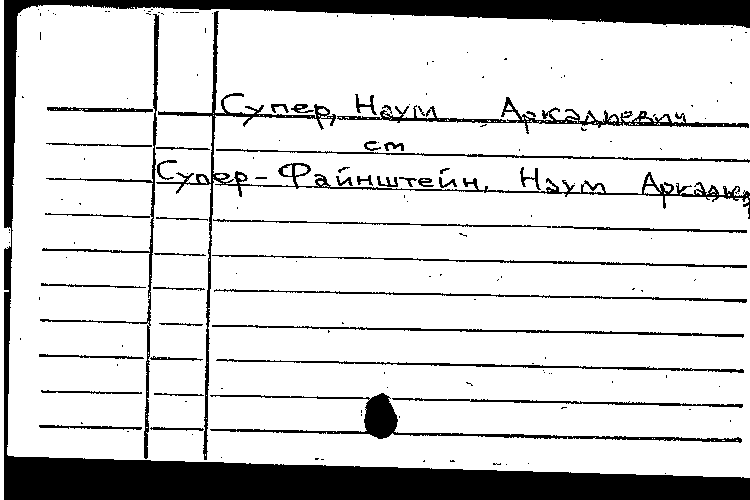 Супер, Наум Аркадьевич
ст
Супер-Файнштейн, Наум